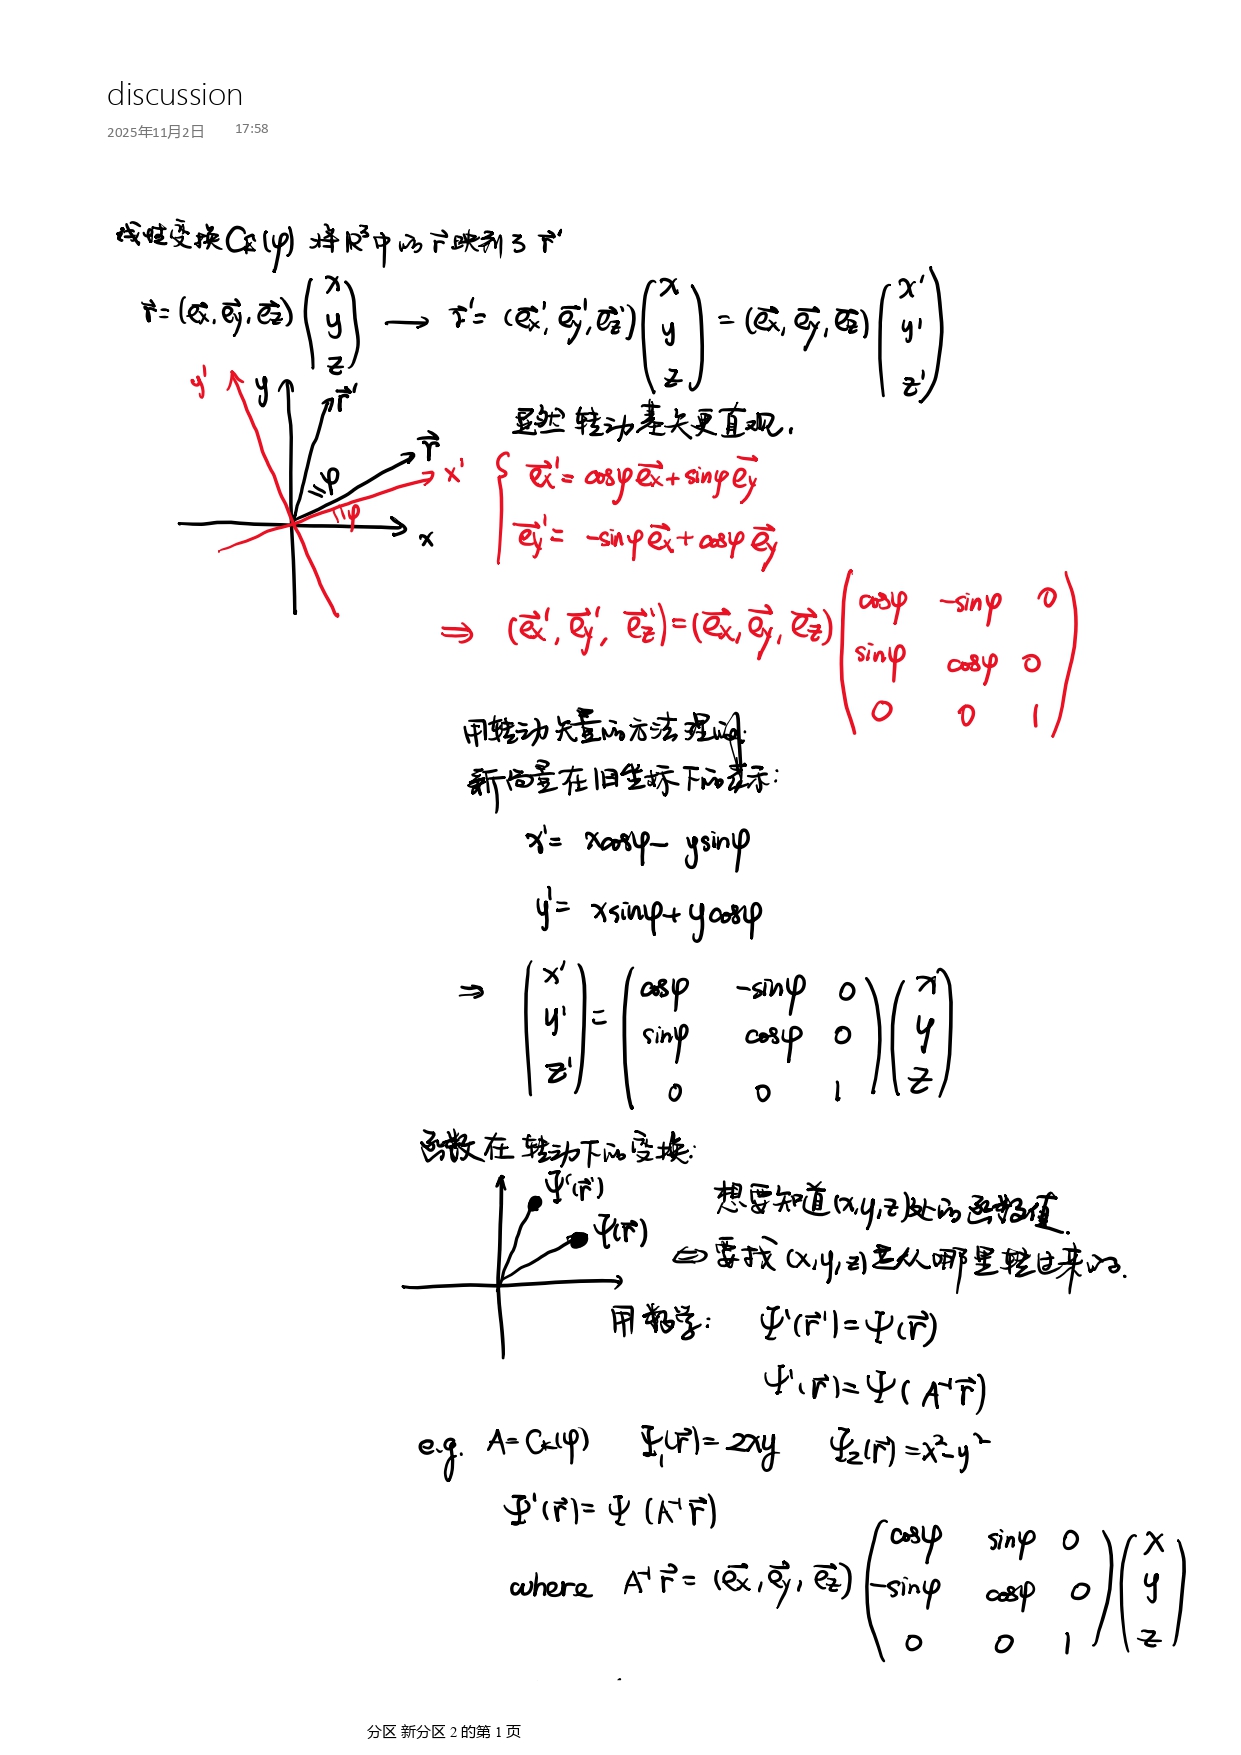 discussion
2025年11月2日 17:58
线性变换 Ck(φ) 将 R³中的 r⃗ 映射到了 r⃗'
r⃗ = (e⃗x, e⃗y, e⃗z) (x y z) → r⃗' = (e⃗x', e⃗y', e⃗z') (x y z) = (e⃗x, e⃗y, e⃗z) (x' y' z')
y' y r⃗' r⃗ x' φ φ x
显然 转动基矢更直观.
{ e⃗x' = cosφ e⃗x + sinφ e⃗y
e⃗y' = -sinφ e⃗x + cosφ e⃗y
⇒ (e⃗x', e⃗y', e⃗z') = (e⃗x, e⃗y, e⃗z) (cosφ -sinφ 0
sinφ cosφ 0
0 0 1)
用转动矢量的方法理解:
新向量在旧坐标下的表示:
x' = xcosφ - ysinφ
y' = xsinφ + ycosφ
⇒ (x' y' z') = (cosφ -sinφ 0
sinφ cosφ 0
0 0 1) (x y z)
函数在转动下的变换:
ψ'(r⃗')
ψ(r⃗)
想要知道(x,y,z)处的函数值.
⇔ 要找 (x,y,z) 是从哪里转过来的.
用数学: ψ'(r⃗') = ψ(r⃗)
ψ'(r⃗) = ψ(A⁻¹r⃗)
e.g. A = Ck(φ) ψ₁(r⃗) = 2xy ψ₂(r⃗) = x² - y²
ψ'(r⃗) = ψ(A⁻¹r⃗)
where A⁻¹r⃗ = (e⃗x, e⃗y, e⃗z) (cosφ sinφ 0
-sinφ cosφ 0
0 0 1) (x y z)
分区 新分区 2 的第 1 页